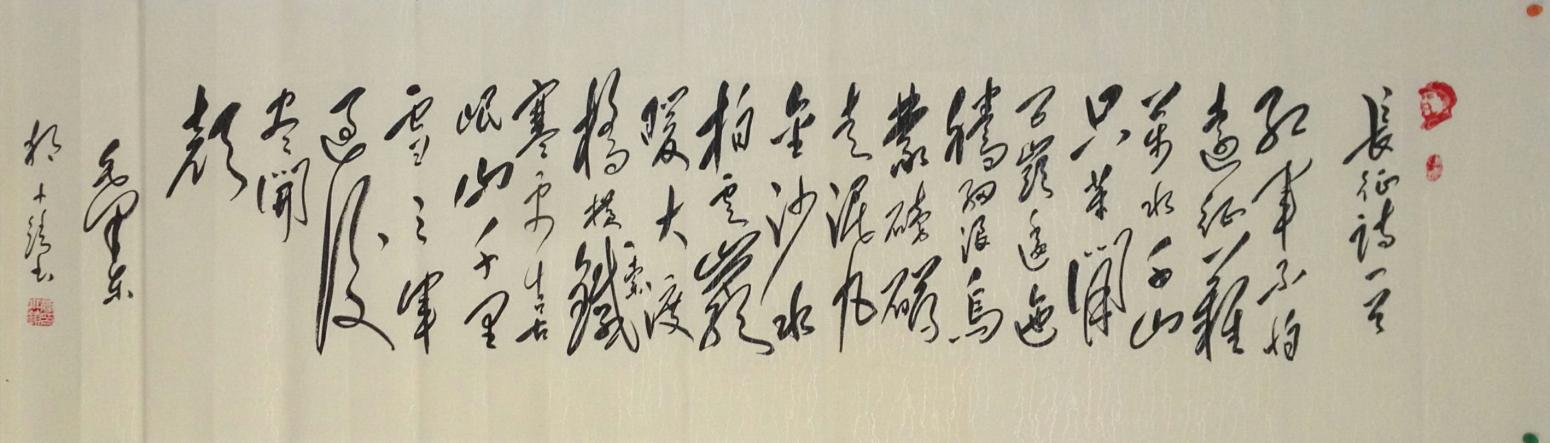 長征詩一首
紅軍不怕
遠征難
萬水千山
只等閑
五嶺逶迤
騰細浪烏
蒙磅礴
走泥丸
金沙水
拍雲巖
暖大渡
橋橫鐵索
寒更喜
岷山千里
雪三軍
過後
盡開
顏
毛澤東